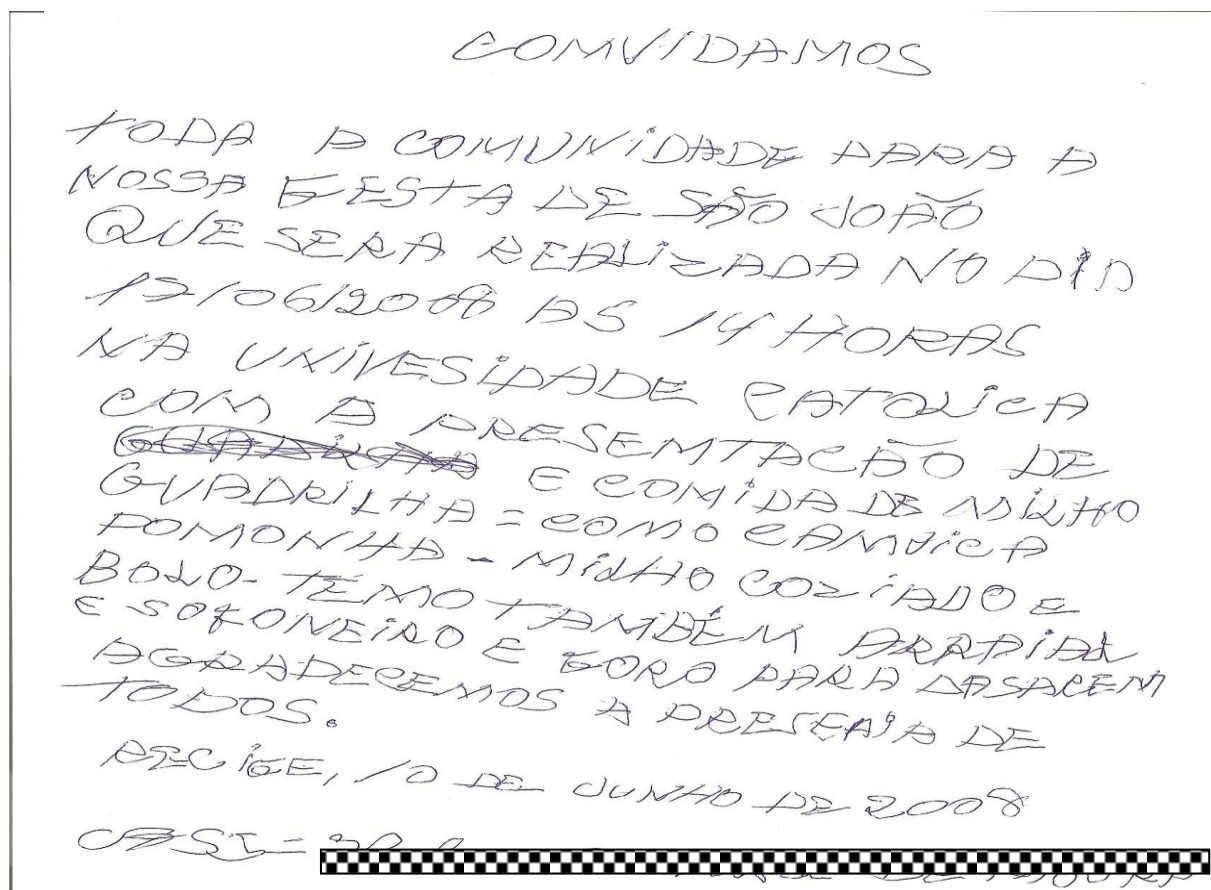 COMVIDAMOS
TODA A COMUNIDADE PARA A
NOSSA FESTA DE SÃO JOÃO
QUE SERA REALIZADA NO DIA
17/06/2008 AS 14 HORAS
NA UNIVESIDADE CATOLICA
COM A PRESEMTACÃO DE
E COMIDA DE MILHO
GUADRILHA = COMO CAMJICA
POMONHA - MILHO COZIADO E
BOLO - TEMO TAMBÉM ARRAIAL
E SOFONEIRO E FORO PARA
AGRADECEMOS A PRESEMÇA DE
TODOS.
RECIFE, 10 DE JUNHO DE 2008